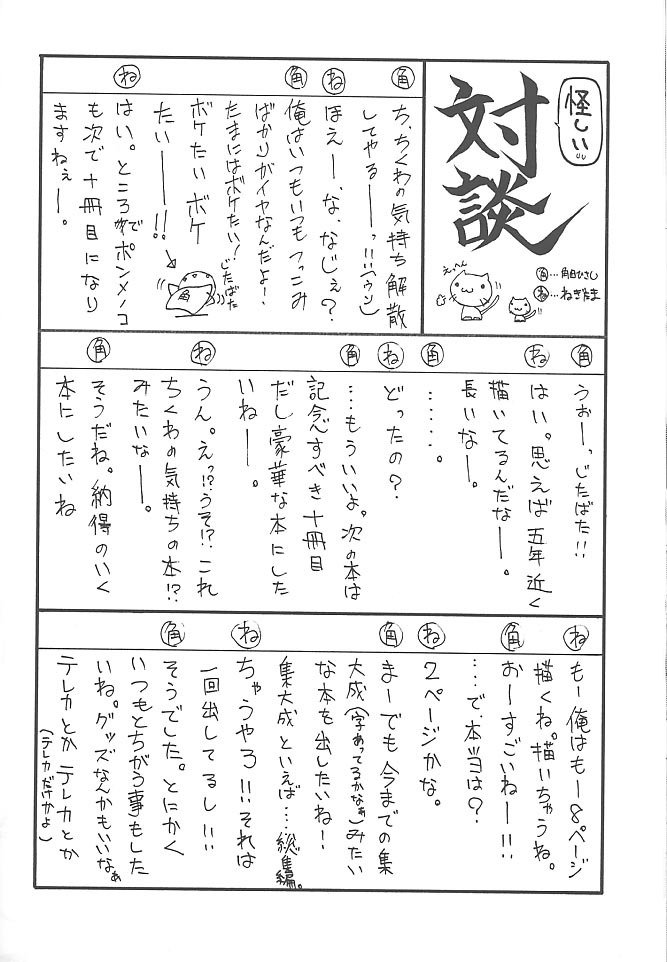 怪しい
対談
角…角日ひさし
ね…ねぎたま
えへん
角 ち、ちくわの気持ち解散
してやるーっ!!(ウソ)
ね ほえー、な、なじぇ?
角 俺はいつもいつもつっこみ
ばかりがイヤなんだよー!
たまにはボケたい!じたばた
ボケたい ボケ
たいーー!!
角
ね はい。ところでポンメノコ
も次で十冊目になり
ますねぇー。
角 うぉーっ、じたばた!!
ね はい。思えば五年近く
描いてるんだなー。
長いなー。
角 ……。
ね どったの?
角 …もういいよ。次の本は
記念すべき十冊目
だし豪華な本にした
いねー。
ね うん。えっ!?うそ!?これ
ちくわの気持ちの本!?
みたいなー。
角 そうだね。納得のいく
本にしたいね
ね もー俺はもー8ページ
描くね。描いちゃうね。
角 おーすごいねー!!
…で、本当ヨは?
ね 2ページかな。
角 まーでも今までの集
大成(字あってるかなぁ)みたい
な本を出したいね!
集大成といえば…総集編。
ね ちゃうやろ!!それは
一回出してるし!!
角 そうでした。とにかく
いつもとちがう事もした
いね。グッズなんかもいいなぁ
テレカとかテレカとか
(テレカだけかよ)